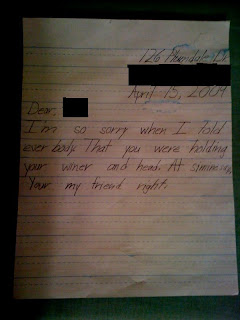 126
April 15, 2009
Dear
I'm so sorry when I told
everbody That you were holding
your winer and head. At swimming
Your my friend right.